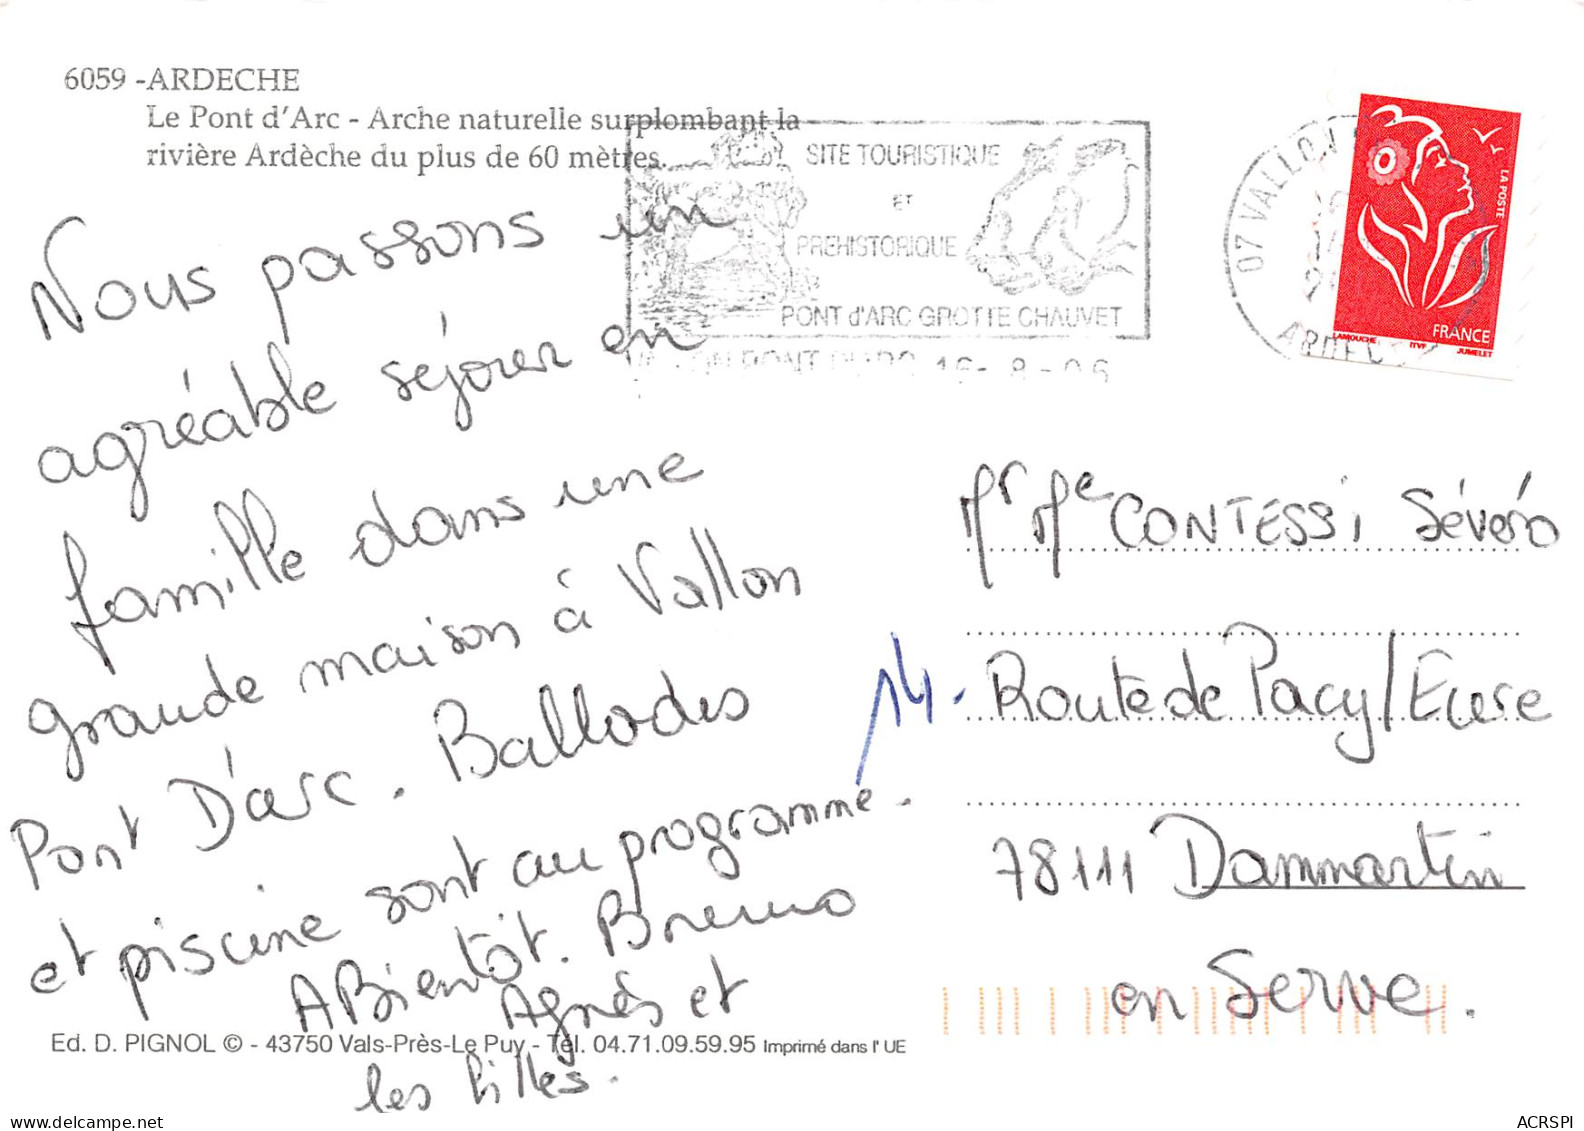 6059 -ARDECHE
Le Pont d'Arc - Arche naturelle surplombant la
rivière Ardèche du plus de 60 mètres.
SITE TOURISTIQUE
ET
PREHISTORIQUE
PONT d'ARC GROTTE CHAUVET
16-8-06
07 VALLON
LA POSTE
FRANCE
LAMOUCHE ITVF JUMELET
Nous passons un
agréable séjour en
famille dans une
grande maison à Vallon
Pont D'arc. Ballades
et piscine sont au programme.
A Bientôt. Bruno
Agnès et
les filles.
Mr Me CONTESSi Sévéro
14. Route de Pacy/Ecese
78111 Dammartin
en Serve.
Ed. D. PIGNOL © - 43750 Vals-Près-Le Puy - Tél. 04.71.09.59.95 Imprimé dans l' UE
ACRSPI